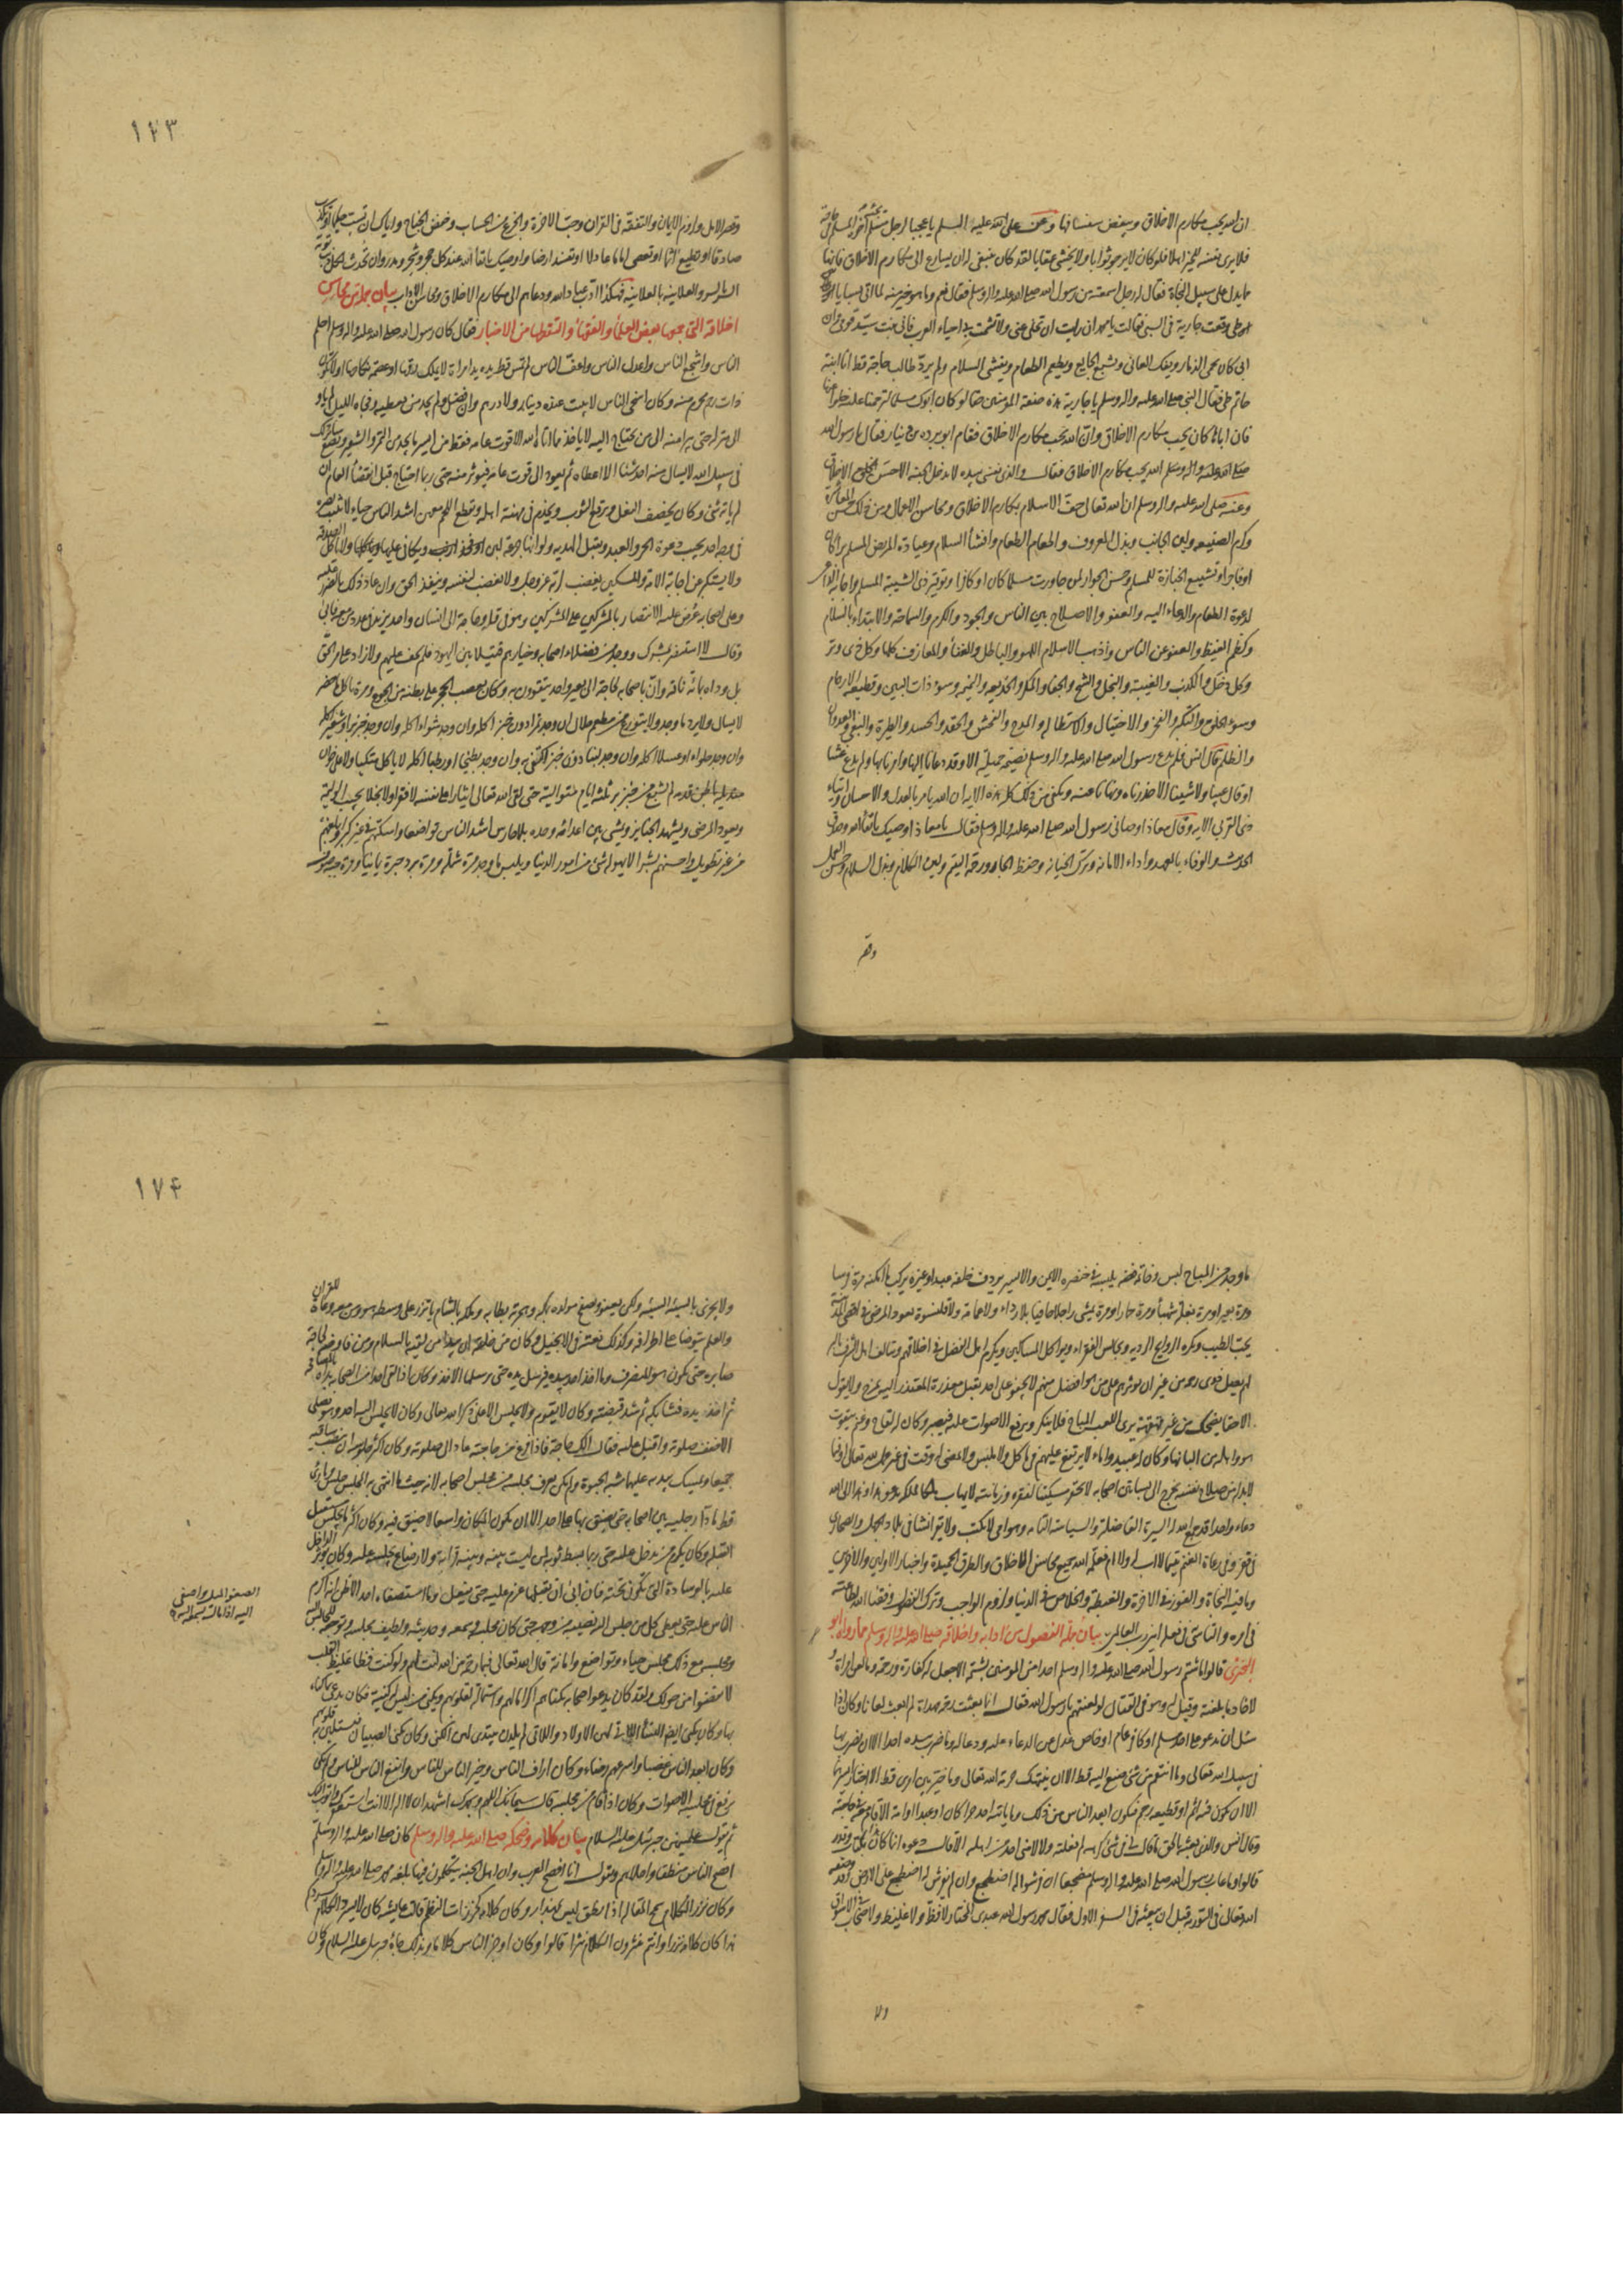 ان الله يحب مكارم الاخلاق ويبغض سفسافها وعن على عليه السلم يا عجبا لرجل مسلم
فلا يرى نفسه للخير اهلا فلو كان لا يرجو ثوابا ولا يخشى عقابا لقد كان ينبغى له ان يسارع الى مكارم الاخلاق فانها
مما يدل على سبيل النجاة فقال له رجل اسمعته من رسول الله صلى الله عليه واله وسلم فقال نعم وما هو خير منه لما اتى بسبايا
طى وقعت جارية فى السبى فقالت يا محمد ان رايت ان تخلى عنى ولا تشمت بى احياء العرب فانى بنت سيد قومى وان
ابى كان يحمى الذمار ويفك العانى ويشبع الجايع ويطعم الطعام ويفشى السلام ولم يرد طالب حاجة قط انا ابنة
حاتم طى فقال النبى صلى الله عليه واله وسلم يا جارية هذه صفة المؤمنين حقا لو كان ابوك مسلما لترحمنا عليه خلوا عنها
فان اباها كان يحب مكارم الاخلاق وان الله يحب مكارم الاخلاق فقام ابو برده بن نيار فقال يا رسول الله
الله يحب مكارم الاخلاق فقال والذى نفسى بيده لا يدخل الجنة الا حسن الاخلاق
وعنه صلى الله عليه واله وسلم ان الله تعالى حف الاسلام بمكارم الاخلاق ومحاسن الاعمال ومن ذلك حسن المعاشرة
وكرم الصنيعه ولين الجانب وبذل المعروف واطعام الطعام وافشاء السلام وعيادة المريض المسلم برا كان
او فاجرا وتشييع الجنازة للمسلم وحسن الجوار لمن جاورت مسلما كان او كافرا وتوقير ذى الشيبة المسلم واجابة
لدعوة الطعام والدعاء اليه والعفو والاصلاح بين الناس والجود والكرم والسماحة والابتداء بالسلام
وكظم الغيظ والعفو عن الناس واذهب الاسلام اللهو والباطل والغناء والمعازف كلها وكل ذى وتر
وكل دخل والكذب والغيبة والبخل والشح والجفا والمكر والخديعه والنميمه وسوء ذات البين وقطيعة الارحام
وسوء الخلق والتكبر والفخر والاختيال والاستطاله والمدح والفحش والحقد والحسد والطيرة والبغى والعدوان
والظلم قال انس فلم يدع رسول الله صلى الله عليه واله وسلم نصيحة جميلة الا وقد دعانا اليها وامرنا بها ولم يدع غشا
او قال عيبا ولا شينا الا حذرناه ونهانا عنه ويكفى من ذلك كله هذه الايه ان الله يامر بالعدل والاحسان وايتاء
ذى القربى الايه وقال معاذ اوصانى رسول الله صلى الله عليه واله وسلم فقال يا معاذ اوصيك باتقاء الله وصدق
الحديث والوفاء بالعهد واداء الامانه وترك الخيانه وحفظ الجار ورحمة اليتم ولين الكلام وبذل السلام وحسن العمل
وقصر
١٧٣
وقصر الامل ولزوم الايمان والتفقه فى القران وحب الاخرة والجزع من الحساب وخفض الجناح واياك ان تسب حكيما او تكذب
صادقا او تطيع اثما او تعصى اماما عادلا او تفسد ارضا واوصيك باتقاء الله عند كل حجر وشجر ومدر وان تحدث لكل ذنب توبة
السر بالسر والعلانيه بالعلانيه فهكذا ادب عباد الله ودعاهم الى مكارم الاخلاق ومحاسن الاداب بيان جملة من محاسن
اخلاقه التى جمعها بعض العلماء والفقهاء والتقطها من الاخبار فقال كان رسول الله صلى الله عليه واله وسلم احلم
الناس واشجع الناس واعدل الناس واعف الناس لم تمس قط يده يد امراة لا يملك رقها او عصمة نكاحها او لا تكون
ذات رحم محرم منه وكان اسخى الناس لا يبيت عنده دينار ولا درهم وان فضل ولم يجد من يعطيه وفجاه الليل لم ياو
الى منزله حتى يبرا منه الى من يحتاج اليه لا ياخذ مما اتاه الله الا قوت عامه فقط من ايسر ما يجد من التمر والشعير ويضع ساير ذلك
فى سبيل الله لا يسال منه احد شيئا الا اعطاه ثم يعود الى قوت عامه فيؤثر منه حتى ربما احتاج قبل انقضاء العام ان
لم ياته شئ وكان يخصف النعل ويرقع الثوب ويخدم فى مهنة اهله ويقطع اللحم معهن اشد الناس حياء لا يثبت بصره
فى وجه احد يجيب دعوة الحر والعبد ويقبل الهديه ولو انها جرعة لبن او فخذ ارنب ويكافى عليها وياكلها ولا ياكل الصدقة
ولا يستكبر عن اجابة الامة والمسكين يغضب لربه عز وجل ولا يغضب لنفسه وينفذ الحق وان عاد ذلك بالضرر عليه
وعلى اصحابه عرض عليه الانتصار بالمشركين على المشركين وهو فى قلة وحاجة الى انسان واحد يزيد فى عدد من معه فابى
وقال لا استنصر بمشرك ووجد من فضلاء اصحابه وخيارهم قتيلا بين اليهود فلم يحف عليهم ولا زاد على مر الحق
بل وداه بمائة ناقة وان باصحابه لحاجة الى بعير واحد يتقوون به وكان يعصب الحجر على بطنه من الجوع ومرة ياكل ما حضر
لا يسال ولا يرد ما وجد ولا يتورع من مطعم حلال ان وجد تمرا دون خبز اكله وان وجد شواء اكله وان وجد خبز بر او شعير اكله
وان وجد حلواء او عسلا اكله وان وجد لبنا دون خبز اكتفى به وان وجد بطيخا او رطبا اكله لا ياكل متكيا ولا على خوان
منديله باطن قدميه لم يشبع من خبز بر ثلثة ايام متوالية حتى لقى الله تعالى ايثارا على نفسه لا فقرا ولا بخلا يجيب الوليمة
ويعود المرضى ويشهد الجنايز ويمشى بين اعدائه وحده بلا حارس اشد الناس تواضعا واسكنهم فى غير كبر وابلغهم
من غير تطويل واحسنهم بشرا لا يهوله شئ من امور الدنيا ويلبس ما وجد مرة شملة ومرة برد حبرة يمانيا ومرة جبة صوف
ما وجد من المباح لبس وخاتمه فضه يلبسه فى خنصره الايمن والايسر يردف خلفه عبده او غيره يركب ما امكنه مرة فرسا
ومرة بعيرا ومرة بغلة شهباء ومرة حمارا ومرة يمشى راجلا حافيا بلا رداء ولا عمامة ولا قلنسوة يعود المرضى فى اقصى المدينة
يحب الطيب ويكره الروايح الرديه ويجالس الفقراء ويواكل المساكين ويكرم اهل الفضل فى اخلاقهم ويتالف اهل الشرف بالبر
لهم يصل ذوى رحمه من غير ان يؤثرهم على من هو افضل منهم لا يجفو على احد يقبل معذرة المعتذر اليه يمزح ولا يقول
الا حقا يضحك من غير قهقهة يرى اللعب المباح فلا ينكر ويرفع الاصوات عليه فيصبر وكان له لقاح وغنم يتقوت
هو واهله من البانها وكان له عبيد واماء لا يرتفع عليهم فى ماكل ولا ملبس ولا يمضى له وقت فى غير عمل لله تعالى او فيما
لا بد له من صلاح نفسه يخرج الى بساتين اصحابه لا يحتقر مسكينا لفقره وزمانته لا يهاب ملكا لملكه يدعو هذا وهذا الى الله
دعاء واحدا قد جمع الله له السيرة الفاضلة والسياسة التامه وهو امى لا يكتب ولا يقرا نشا فى بلاد الجهل والصحارى
فى فقر وفى رعاة الغنم يتيما لا اب له ولا ام فعلمه الله جميع محاسن الاخلاق والطرق الحميدة واخبار الاولين والاخرين
وما فيه النجاة والفوز فى الاخرة والغبطة والخلاص فى الدنيا ولزوم الواجب وترك الفضول وفقنا الله لطاعته
فى امره والتاسى فى فعله امين رب العالمين بيان جملة الفصول من ادابه واخلاقه صلى الله عليه واله وسلم مما رواه ابو
البخترى قالوا ما شتم رسول الله صلى الله عليه واله وسلم احدا من المؤمنين بشتمه الا جعل له كفارة ورحمه وما لعن امراة
ولا خادما بلعنة وقيل له وهو فى القتال لو لعنتهم يا رسول الله فقال انما بعثت رحمة مهداة لم ابعث لعانا وكان اذا
سئل ان يدعو على احد مسلم او كافر عام او خاص عدل عن الدعاء عليه ودعا له وما ضرب بيده احدا الا ان يضرب بها
فى سبيل الله تعالى وما انتقم من شئ صنع اليه قط الا ان ينتهك حرمة الله تعالى وما خير بين امرين قط الا اختار ايسرهما
الا ان يكون فيه اثم او قطيعه رحم فيكون ابعد الناس من ذلك وما ياتيه احد حر كان او عبد او امة الا قام معه فى حاجته
وقال انس والذى بعثه بالحق ما قال لى فى شئ كرهه لم فعلته ولا لامنى احد من اهله الا قال دعوه انما كان هذا بكتاب وقدر
قالوا وما عاب رسول الله صلى الله عليه واله وسلم مضجعا ان فرشوا له اضطجع وان لم يفرش له اضطجع على الارض وقد وصفه
الله تعالى فى التوريه قبل ان يبعثه فى السطر الاول فقال محمد رسول الله عبدى المختار لا فظ ولا غليظ ولا صخاب فى الاسواق
ولا
١٧۴
ولا يجزى بالسيئه السيئه ولكن يعفو ويصفح مولده بمكه وهجرته بطابه وملكه بالشام ياتزر على وسطه هو ومن معه وعاة للقران
والعلم يتوضا على اطرافه وكذلك نعته فى الانجيل وكان من خلقه ان يبدا من لقيه بالسلام ومن فاوضه لحاجة
صابره حتى يكون هو المنصرف وما اخذ احد بيده فيرسل يده حتى يرسلها الاخذ وكان اذا لقى احدا من اصحابه بداه بالمصافحه
ثم اخذ يده فشابكه ثم شد قبضته وكان لا يقوم ولا يجلس الا على ذكر الله تعالى وكان لا يجلس اليه احد وهو يصلى
الا خفف صلوته واقبل عليه فقال الك حاجة فاذا فرغ من حاجته عاد الى صلوته وكان اكثر جلوسه ان ينصب ساقيه
جميعا ويمسك بيديه عليهما شبه الحبوة ولم يكن يعرف مجلسه من مجلس اصحابه لانه حيث ما انتهى به المجلس جلس وما رئى
قط مادا رجليه بين اصحابه حتى يضيق بها على احد الا ان يكون المكان واسعا لا ضيق فيه وكان اكثر ما يجلس مستقبل
القبله وكان يكرم من يدخل عليه حتى ربما بسط ثوبه لمن ليست بينه وبينه قرابة ولا رضاع يجلسه عليه وكان يوثر الداخل
عليه بالوسادة التى تكون تحته فان ابى ان يقبلها عزم عليه حتى يفعل وما استصفاه احد الا ظن انه اكرم
الناس عليه حتى يعطى كل من جلس اليه نصيبه من وجهه حتى كان مجلسه وسمعه وحديثه ولطيف مجلسه وتوجهه للجالس اليه
ومجلسه مع ذلك مجلس حياء وتواضع وامانة قال الله تعالى فبما رحمة من الله لنت لهم ولو كنت فظا غليظ القلب
لانفضوا من حولك ولقد كان يدعو اصحابه بكناهم اكراما لهم واستمالة لقلوبهم ويكنى من ليس له كنية فكان يدعى بما كناه
بها وكان يكنى ايضا النساء اللاتى لهن الاولاد واللاتى لم يلدن يبتدى لهن الكنى وكان يكنى الصبيان فيستلين به قلوبهم
وكان ابعد الناس غضبا واسرعهم رضاء وكان اراف الناس وخير الناس للناس وانفع الناس للناس ولم تكن
ترفع فى مجلسه الاصوات وكان اذا قام من مجلسه قال سبحانك اللهم وبحمدك اشهد ان لا اله الا انت استغفرك واتوب اليك
ثم يقول علمنيهن جبرئيل عليه السلام بيان كلامه وضحكه صلى الله عليه واله وسلم كان صلى الله عليه واله وسلم
افصح الناس منطقا واحلاهم ويقول انا افصح العرب وان اهل الجنة يتكلمون فيها بلغة محمد صلى الله عليه واله وسلم
وكان نزر الكلام سمح المقاله اذا نطق ليس بمهذار وكان كلامه كخرزات النظم قالت عايشه كان لا يسرد الكلام سردكم
هذا كان كلامه نزرا وانتم تنثرون الكلام نثرا قالوا وكان اوجز الناس كلاما وبذلك جاءه جبرئيل عليه السلام وكان